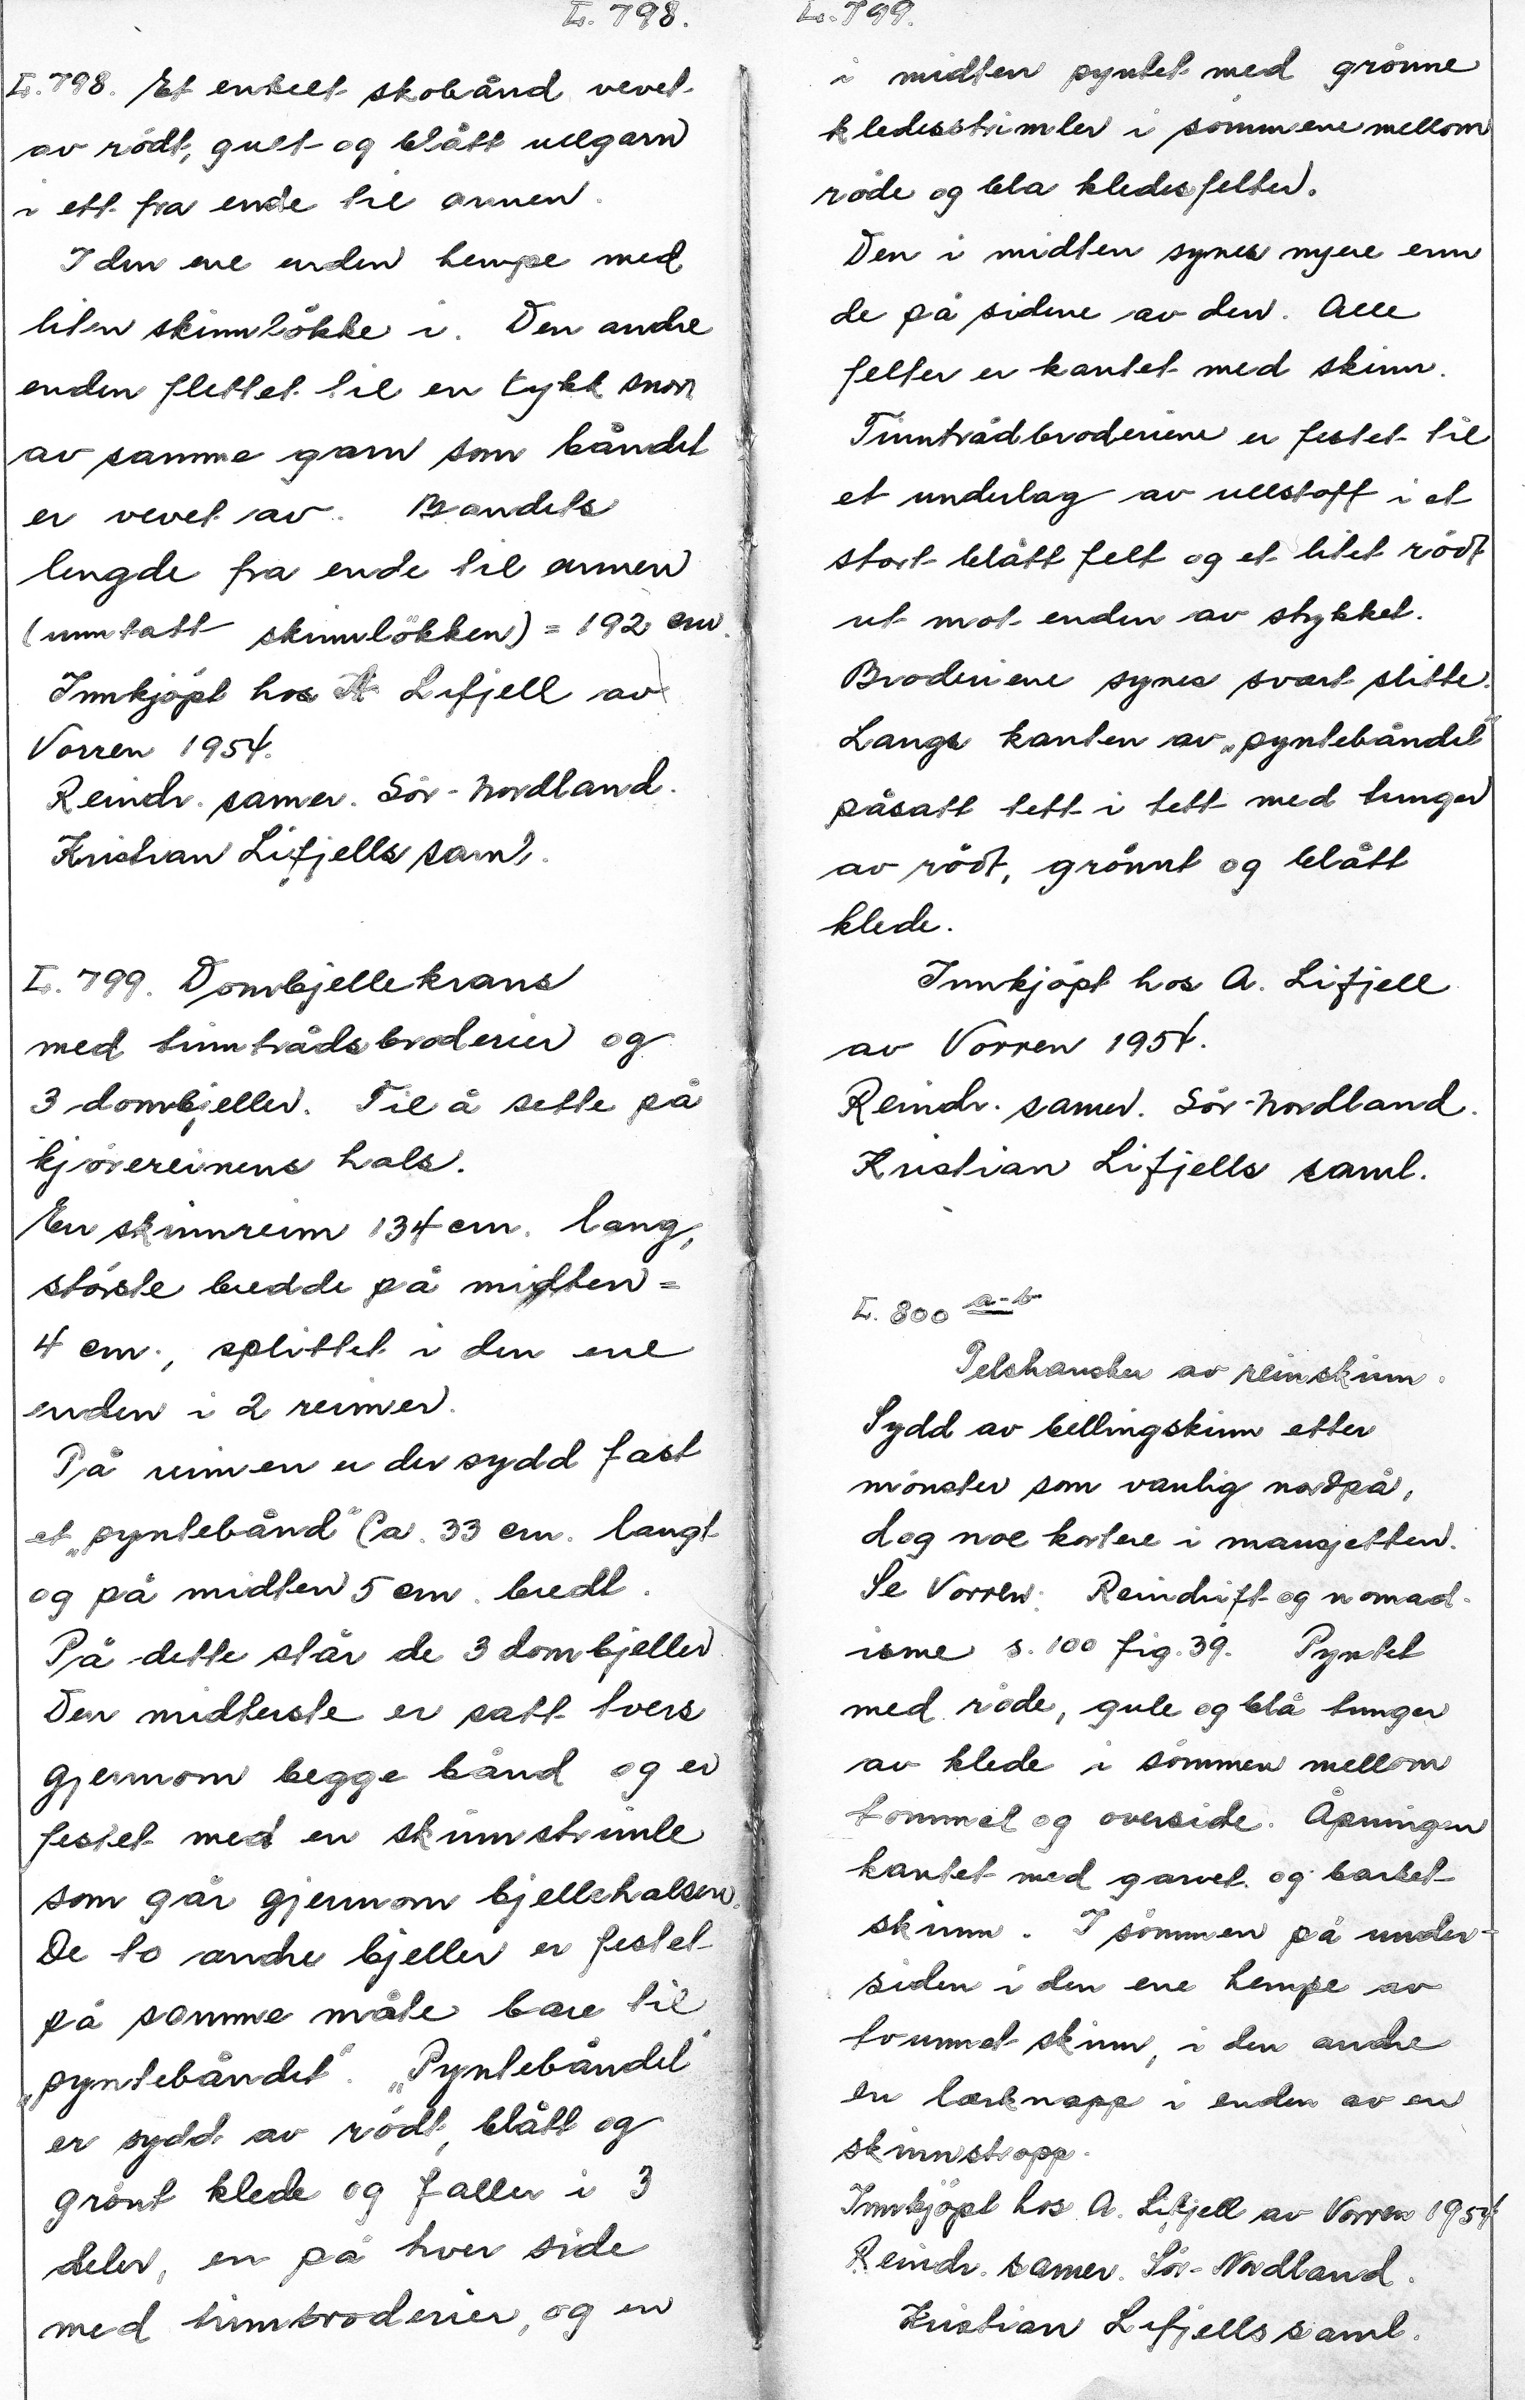 L. 798.
L. 798. Et enkelt skobånd vevet
av rödt, gult og blått ullgarn
i ett fra ende til annen.
I den ene enden hempe med
liten skinnlökke i. Den andre
enden flettet til en tykk snor
av samme garn som båndet
er vevet av. Bandets
lengde fra ende til annen
(unntatt skinnlökken) = 192 cm.
Innkjöpt hos A Lifjell av
Vorren 1954.
Reindr. samer. Sör-Nordland.
Kristian Lifjells saml.
L. 799. Dombjellekrans
med tinntrådsbroderier og
3 dombjeller. Til å sette på
kjörereinens hals.
En skinnreim 134 cm. lang,
störste bredde på midten =
4 cm., splittet i den ene
enden i 2 reimer.
På reimen er der sydd fast
et „pyntebånd" Ca. 33 cm. langt
og på midten 5 cm. bredt.
På dette står de 3 dombjeller.
Den midterste er satt tvers
gjennom begge bånd og er
festet med en skinnstrimle
som går gjennom bjellehalsen.
De to andre bjeller er festet
på samme måte bare til
„pyntebåndet". „Pyntebåndet"
er sydd av rödt, blått og
grönt klede og faller i 3
deler, en på hver side
med tinnbroderier, og en
L. 799.
i midten pyntet med grönne
kledesstrimler i sömmene mellom
röde og bla kledesfelter.
Den i midten synes nyere enn
de på sidene av den. Alle
felter er kantet med skinn.
Tinntrådbroderiene er festet til
et underlag av ullstoff i et
stort blått felt og et litet rödt
ut mot enden av stykket.
Broderiene synes svært slitte.
Langs kanten av „pyntebåndet"
påsatt tett i tett med tunger
av rödt, grönnt og blått
klede.
Innkjöpt hos A. Lifjell
av Vorren 1954.
Reindr. samer. Sör-Nordland.
Kristian Lifjells saml.
L. 800 a-b
Pelshansker av reinskinn.
Sydd av bellingskinn etter
mönster som vanlig nordpå,
dog noe kortere i mansjetten.
Se Vorren: Reindrift og nomad-
isme s. 100 fig. 39. Pyntet
med röde, gule og blå tunger
av klede i sömmen mellom
tommel og overside. Åpningen
kantet med garvet og barket
skinn. I sömmen på under-
siden i den ene hempe av
tvunnet skinn, i den andre
en lærknapp i enden av en
skinnstropp.
Innkjöpt hos A. Lifjell av Vorren 1954
Reindr. samer. Sör-Nordland.
Kristian Lifjells saml.